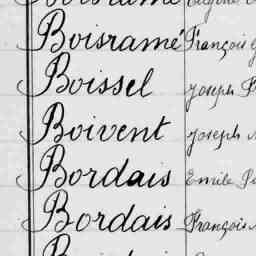 Boisramé François
Boissel Joseph
Boivent Joseph
Bordais Emile
Bordais François